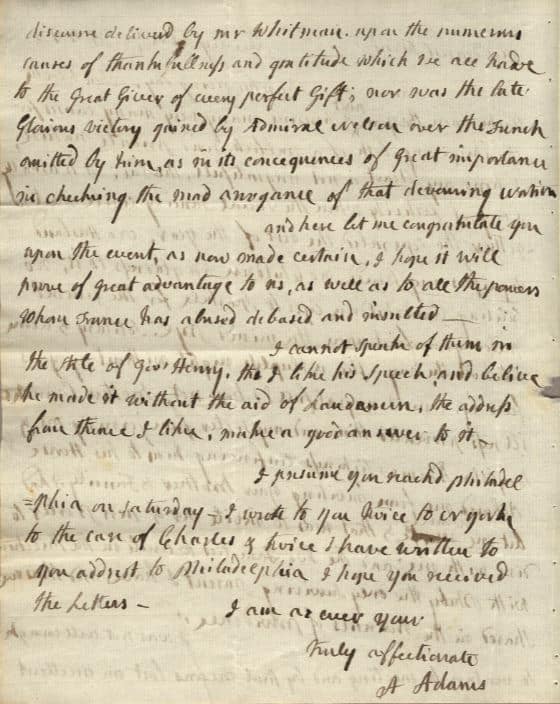 discourse deliverd by mr Whitman. upon the numerous
causes of thankfullness and gratitude which we all have
to the Great Giver of every perfect Gift; nor was the late
Glorious victory gained by Admiral Nelson over the French
omitted by him, as in its concequences of Great importance
in checking the mad arrogance of that devouring Nation
and here let me congratulate you
upon the event, as now made certain, I hope it will
prove of great advantage to us, as well as to all the powers
whom France has abused debased and insulted —
I cannot speak of them in
the stile of Govr Henry, tho I like his speech, and believe
he made it without the aid of Laudanum, the address
from thence I like, make a good answer to it —
I presume you reachd Philadel
=phia on saturday — I wrote to you twice to N york
to the care of Charles & twice I have written to
you addrest to Philadelphia I hope you received
the Letters — I am as ever your
truly affectionate
A Adams